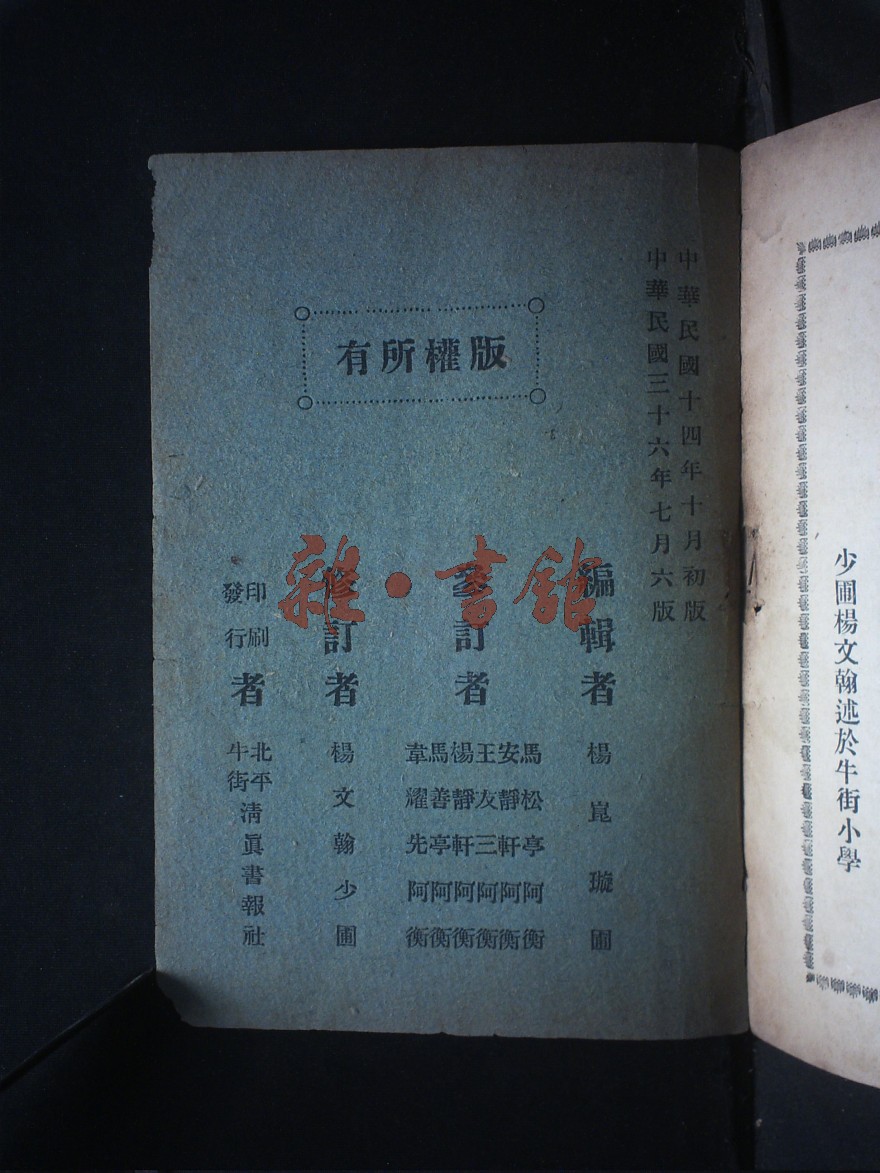 少圃楊文翰述於牛街小學
中華民國十四年十月初版
中華民國三十六年七月六版
版權所有
編輯者 楊崑璇圃
參訂者
馬松亭阿衡
安靜軒阿衡
王友三阿衡
楊靜軒阿衡
馬善亭阿衡
韋耀先阿衡
修訂者 楊文翰少圃
印刷發行者 北平牛街清眞書報社
雜·書館